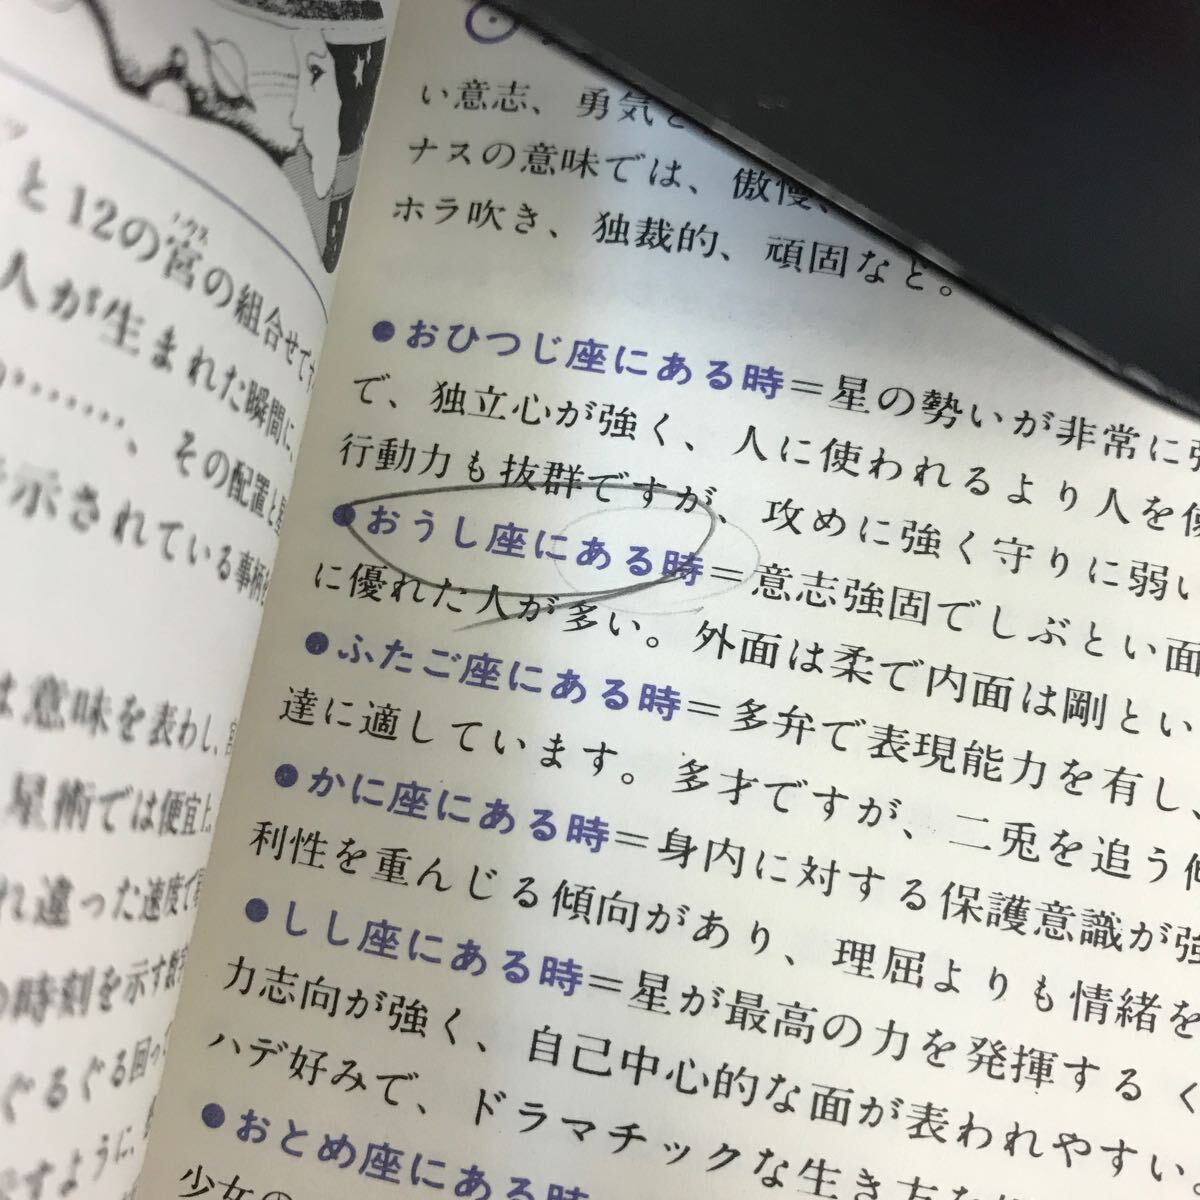 と12の宮の組合せです
ハウス
人が生まれた瞬間に、
………、その配置と星
示されている事柄を
は意味を表わし、宮
星術では便宜上、
れ違った速度で
の時刻を示す数字
ぐるぐる回っ
すように、
い意志、勇気と
ナスの意味では、傲慢、
ホラ吹き、独裁的、頑固など。
●おひつじ座にある時＝星の勢いが非常に強
で、独立心が強く、人に使われるより人を使
行動力も抜群ですが、攻めに強く守りに弱い
●おうし座にある時＝意志強固でしぶとい面
に優れた人が多い。外面は柔で内面は剛とい
●ふたご座にある時＝多弁で表現能力を有し、
達に適しています。多才ですが、二兎を追う傾
●かに座にある時＝身内に対する保護意識が強
利性を重んじる傾向があり、理屈よりも情緒を
●しし座にある時＝星が最高の力を発揮するく
力志向が強く、自己中心的な面が表われやすい。
ハデ好みで、ドラマチックな生き方を
●おとめ座にある時
少女の